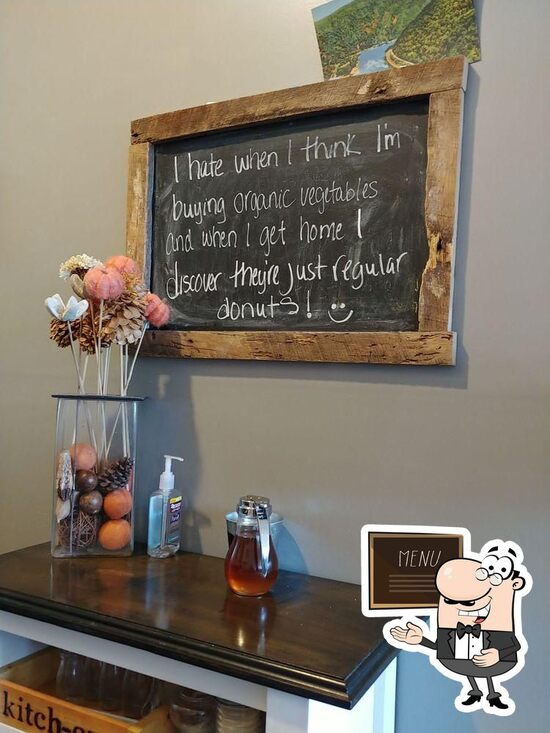 I hate when I think I'm
buying organic vegetables
and when I get home I
discover they're just regular
donuts!
MENU
kitch